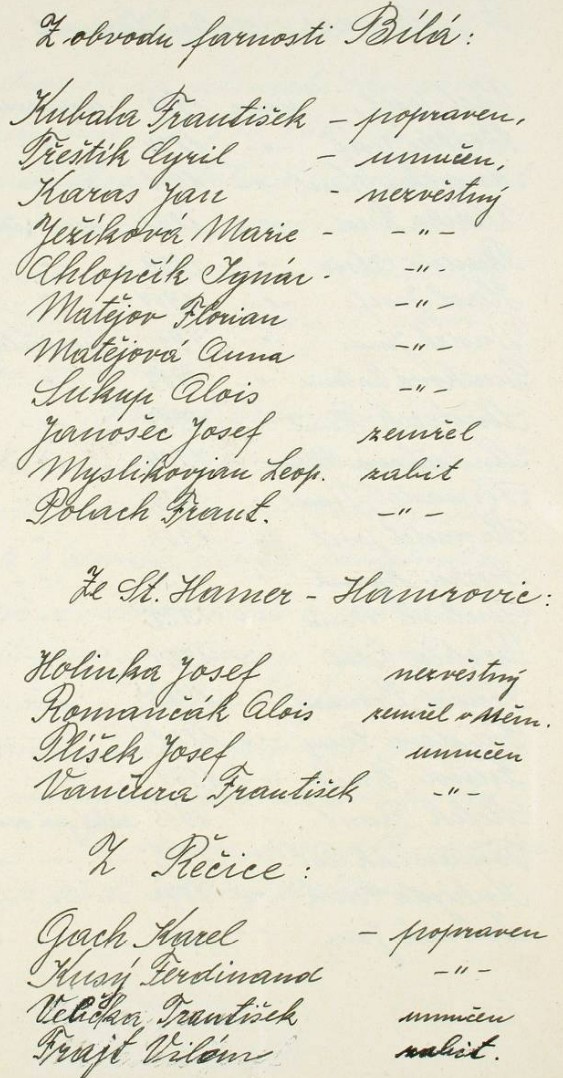 Z obvodu farnosti Bílá:
Kubala František - popraven,
Třeštík Cyril - umučen,
Karas Jan - nezvěstný
Ježíková Marie - -"-
Chlopčík Ignác - -"-
Matějov Florian -"-
Matějová Anna -"-
Sukup Alois -"-
Janošec Josef zemřel
Myslikovjan Leop. zabit
Polach Frant. -"-
Ze St. Hamer - Hamrovic:
Holinka Josef nezvěstný
Romančák Alois zemřel v Něm.
Plíšek Josef umučen
Vančura František -"-
Z Řečice:
Gach Karel - popraven
Kusý Ferdinand -"-
Velička František umučen
Frajt Vilém zabit.